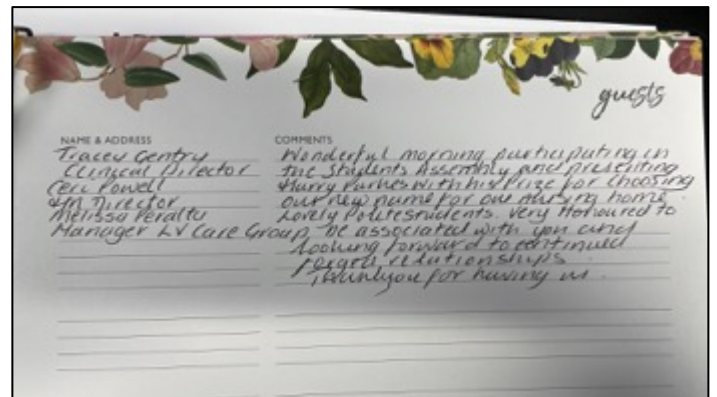 guests
NAME & ADDRESS
Tracey Gentry
Clinical Director
Ceri Powell
Director
Melissa Peralta
Manager LV Care Group
COMMENTS
Wonderful morning participating in
the Students Assembly and presenting
Harry Parkes with his Prize for Choosing
our new name for our nursing home
Lovely Polite students. Very Honoured to
be associated with you and
Looking forward to continued
forged relationships
Thankyou for having us.